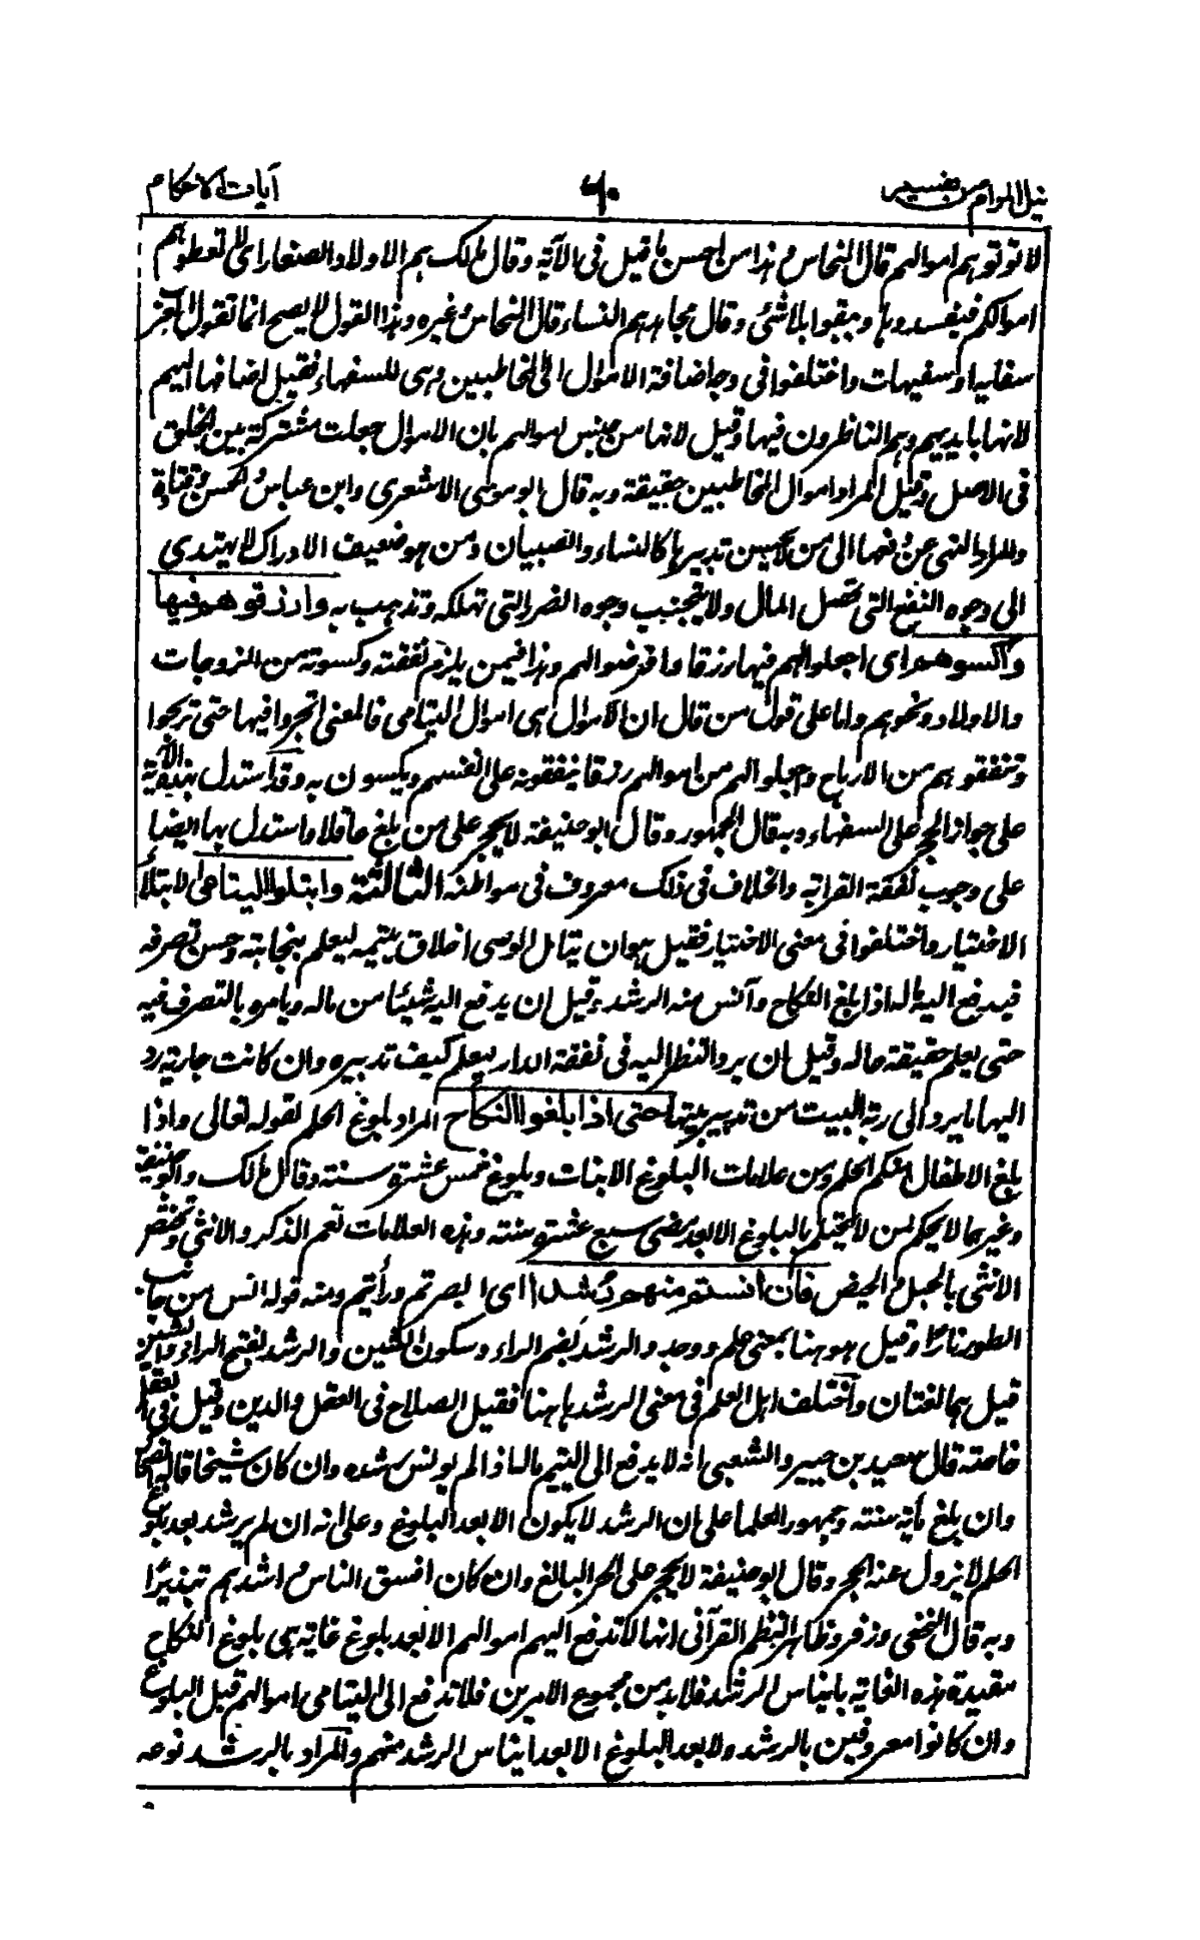 نيل المرام من تفسير ٦٠ آيات الاحكام
لا تؤتوهم اموالهم قال النحاس وهذا من احسن ما قيل فى الآية وقال مالك هم الاولاد الصغار اى لا تعطوهم
اموالكم فيفسدوها ويبقوا بلا شئ وقال مجاهد هم النساء قال النحاس وغيره وهذا القول لا يصح انما تقول العرب
سفايه او سفيهات واختلفوا فى وجه اضافة الاموال الى المخاطبين وهى للسفهاء فقيل اضافها اليهم
لانها بايديهم وهم الناظرون فيها وقيل لانها من جنس اموالهم بان الاموال جعلت مشتركة بين الخلق
فى الاصل وقيل المراد اموال المخاطبين حقيقة وبه قال ابو موسى الاشعرى وابن عباس والحسن وقتادة
والمراد النهى عن دفعها الى من لا يحسن تدبيرها كالنساء والصبيان ومن هو ضعيف الادراك لا يهتدى
الى وجوه النفع التى تحصل المال ولا يتجنب وجوه الضرر التى تهلكه وتذهب به وارزقوهم فيها
واكسوهم اى اجعلوا لهم فيها رزقا وافرضوا لهم وهذا فيمن يلزم نفقته وكسوته من الزوجات
والاولاد ونحوهم واما على قول من قال ان الاموال هى اموال اليتامى فالمعنى اتجروا فيها حتى تربحوا
وتنفقوهم من الارباح واجعلوا لهم من اموالهم رزقا ينفقونه على انفسهم ويكسون به وقد استدل بهذه الآية
على جواز الحجر على السفهاء وبه قال الجمهور وقال ابو حنيفة لا يحجر على من بلغ عاقلا واستدل بها ايضا
على وجوب نفقة القرابة والخلاف فى ذلك معروف فى مواطنه الثالثة وابتلوا اليتامى الابتلاء
الاختبار واختلفوا فى معنى الاختبار فقيل هو ان يتامل الوصى اخلاق يتيمه ليعلم بنجابته وحسن تصرفه
فيدفع اليه ماله اذا بلغ النكاح وآنس منه الرشد وقيل ان يدفع اليه شيئا من ماله ويامره بالتصرف فيه
حتى يعلم حقيقة حاله وقيل ان يرد النظر اليه فى نفقة الدار ليعلم كيف تدبيره وان كانت جارية رد
اليها ما يرد الى ربة البيت من تدبير بيتها حتى اذا بلغوا النكاح المراد بلوغ الحلم لقوله تعالى واذا
بلغ الاطفال منكم الحلم ومن علامات البلوغ الانبات وبلوغ خمس عشرة سنة وقال مالك وابو حنيفة
وغيرهما لا يحكم لمن لا يحتلم بالبلوغ الا بعد مضى سبع عشرة سنة وهذه العلامات تعم الذكر والانثى وتختص
الانثى بالحبل والحيض فان آنستم منهم رشدا اى ابصرتم ورأيتم ومنه قوله انس من جانب
الطور نارا وقيل هو هنا بمعنى علم ووجد والرشد بضم الراء وسكون الشين والرشد بفتح الراء والشين
قيل هما لغتان واختلف اهل العلم فى معنى الرشد هاهنا فقيل الصلاح فى العقل والدين وقيل فى العقل
خاصة قال سعيد بن جبير والشعبى انه لا يدفع الى اليتيم ماله اذا لم يونس رشده وان كان شيخا قال الضحاك
وان بلغ مأية سنة وجمهور العلما على ان الرشد لا يكون الا بعد البلوغ وعلى انه ان لم يرشد بعد بلوغ
الحلم لا يزول عنه الحجر وقال ابو حنيفة لا يحجر على الحر البالغ وان كان افسق الناس واشدهم تبذيرا
وبه قال النخعى وزفر وظاهر النظم القرآنى انها لا تدفع اليهم اموالهم الا بعد بلوغ غاية هى بلوغ النكاح
مقيدة هذه الغاية بايناس الرشد فلا بد من مجموع الامرين فلا تدفع الى اليتامى اموالهم قبل البلوغ
وان كانوا معروفين بالرشد ولا بعد البلوغ الا بعد ايناس الرشد منهم والمراد بالرشد نوعه